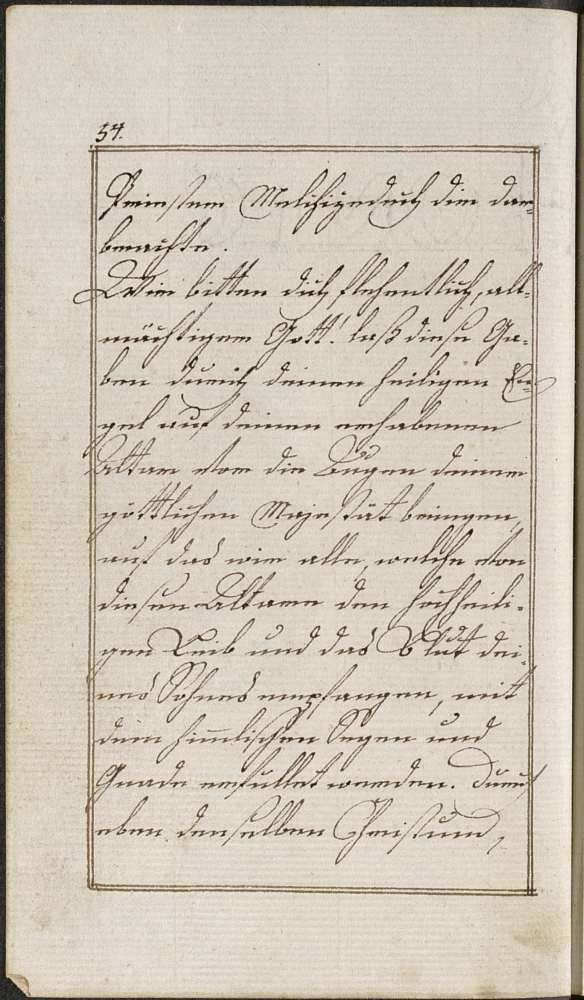 54.
Priestern Melchisedech dir dar=
brachte.
Wir bitten dich flehentlich, all=
mächtigem Gott! laß diese Ga=
ben durch deinen heiligen En=
gel auf deinen erhabenen
Altar vor die Augen deiner
göttlichen Majestät bringen,
auf das wir alle, welche von
diesen Altare den hochheili=
gen Leib und das Blut dei=
nes Sohnes empfangen, mit
dem himlischen Segen und
Gnade erfüllet werden. Durch
eben denselben Christum,